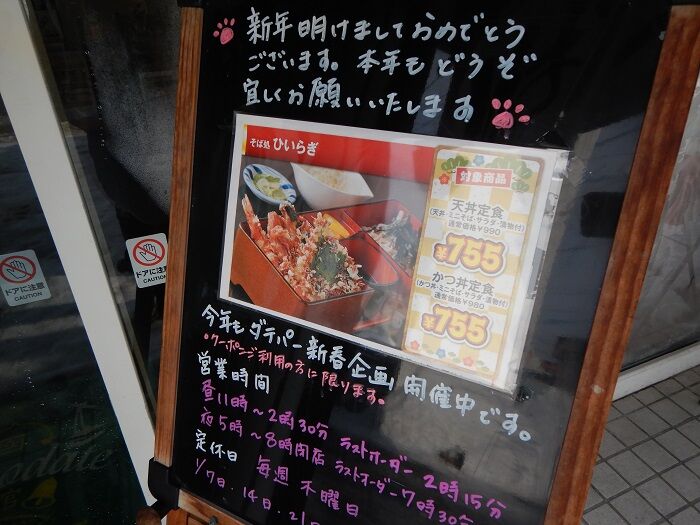 新年明けましておめでとう
ございます。本年もどうぞ
宜しくお願いいたします
そば処 ひいらぎ
対象商品
天丼定食
(天丼・ミニそば・サラダ・漬物付)
通常価格￥990
￥755
かつ丼定食
(かつ丼・ミニそば・サラダ・漬物付)
通常価格￥980
￥755
今年もダテパー新春企画 開催中です。
*クーポンご利用の方に限ります。
営業時間
昼11時〜2時30分 ラストオーダー 2時15分
夜5時〜8時閉店 ラストオーダー7時30分
定休日 毎週 木曜日
1/7日. 14日. 21日
ドアに注意
CAUTION
ドアに注意
CAUTION